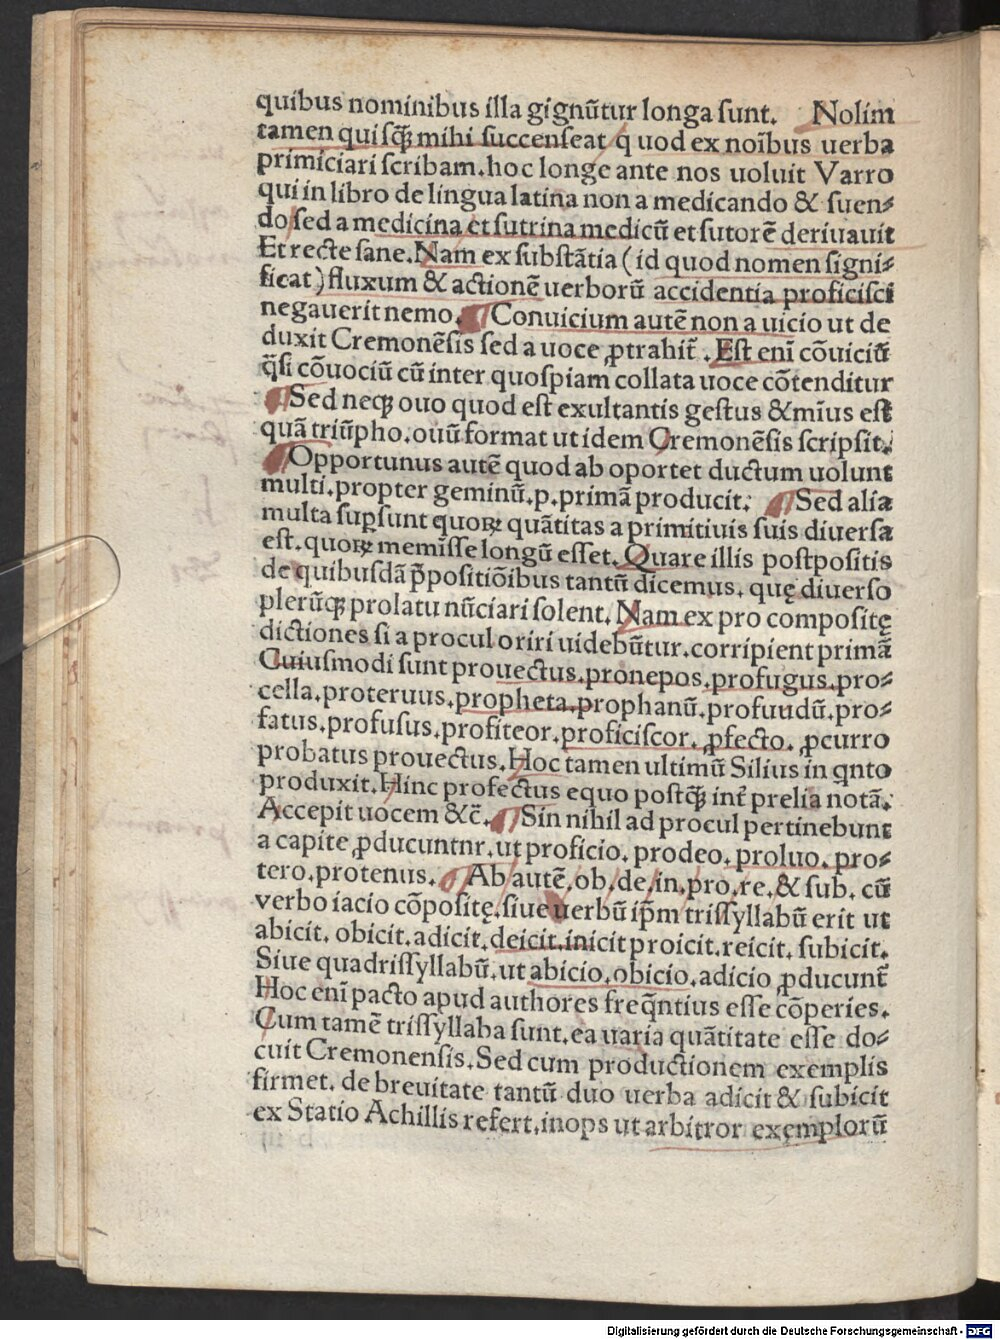 quibus nominibus illa gignūtur longa sunt. Nolim
tamen quisq̃ mihi succenseat quod ex noībus uerba
primiciari scribam. hoc longe ante nos uoluit Varro
qui in libro de lingua latina non a medicando & suen⸗
do sed a medicina et sutrina medicū et sutorē deriuauit
Et recte sane. Nam ex substātia (id quod nomen signi⸗
ficat) fluxum & actionē uerborū accidentia proficisci
negauerit nemo. Conuicium autē non a uicio ut de
duxit Cremonēsis sed a uoce ꝓtrahit̄. Est enī cōuiciū
q̄si cōuociū cū inter quospiam collata uoce cōtenditur
Sed neqꝫ ouo quod est exultantis gestus & mīus est
quā triūpho. ouū format ut idem Cremonēsis scripsit.
Opportunus autē quod ab oportet ductum uolunt
multi. propter geminū. p. primā producit. Sed alia
multa suꝑsunt quoꝝ quātitas a primitiuis suis diuersa
est. quoꝝ memīsse longū esset. Quare illis postpositis
de quibusdā p̄positiōibus tantū dicemus. quę diuerso
plerūqꝫ prolatu nūciari solent. Nam ex pro compositę
dictiones si a procul oriri uidebūtur. corripient primā
Cuiusmodi sunt prouectus. pronepos. profugus. pro⸗
cella. proteruus. propheta. prophanū. profuudū. pro⸗
fatus. profusus. profiteor. proficiscor. ꝓfecto. ꝓcurro
probatus prouectus. Hoc tamen ultimū Silius in qnto
produxit. Hinc profectus equo postq̃ int̄ prelia notā.
Accepit uocem &c̄. Sin nihil ad procul pertinebunt
a capite ꝓducuntnr. ut proficio. prodeo. proluo. pro⸗
tero. protenus. Ab autē. ob. de. in. pro. re. & sub. cū
verbo iacio cōpositę. siue uerbū ip̄m trissyllabū erit ut
abicit. obicit. adicit. deicit. inicit proicit. reicit. subicit.
Siue quadrissyllabū. ut abicio. obicio. adicio ꝓducunt̄
Hoc enī pacto apud authores freq̄ntius esse cōperies.
Cum tamē trissyllaba sunt. ea uaria quātitate esse do⸗
cuit Cremonensis. Sed cum productionem exemplis
firmet. de breuitate tantū duo uerba adicit & subicit
ex Statio Achillis refert. inops ut arbitror exęmplorū
Digitalisierung gefördert durch die Deutsche Forschungsgemeinschaft - DFG